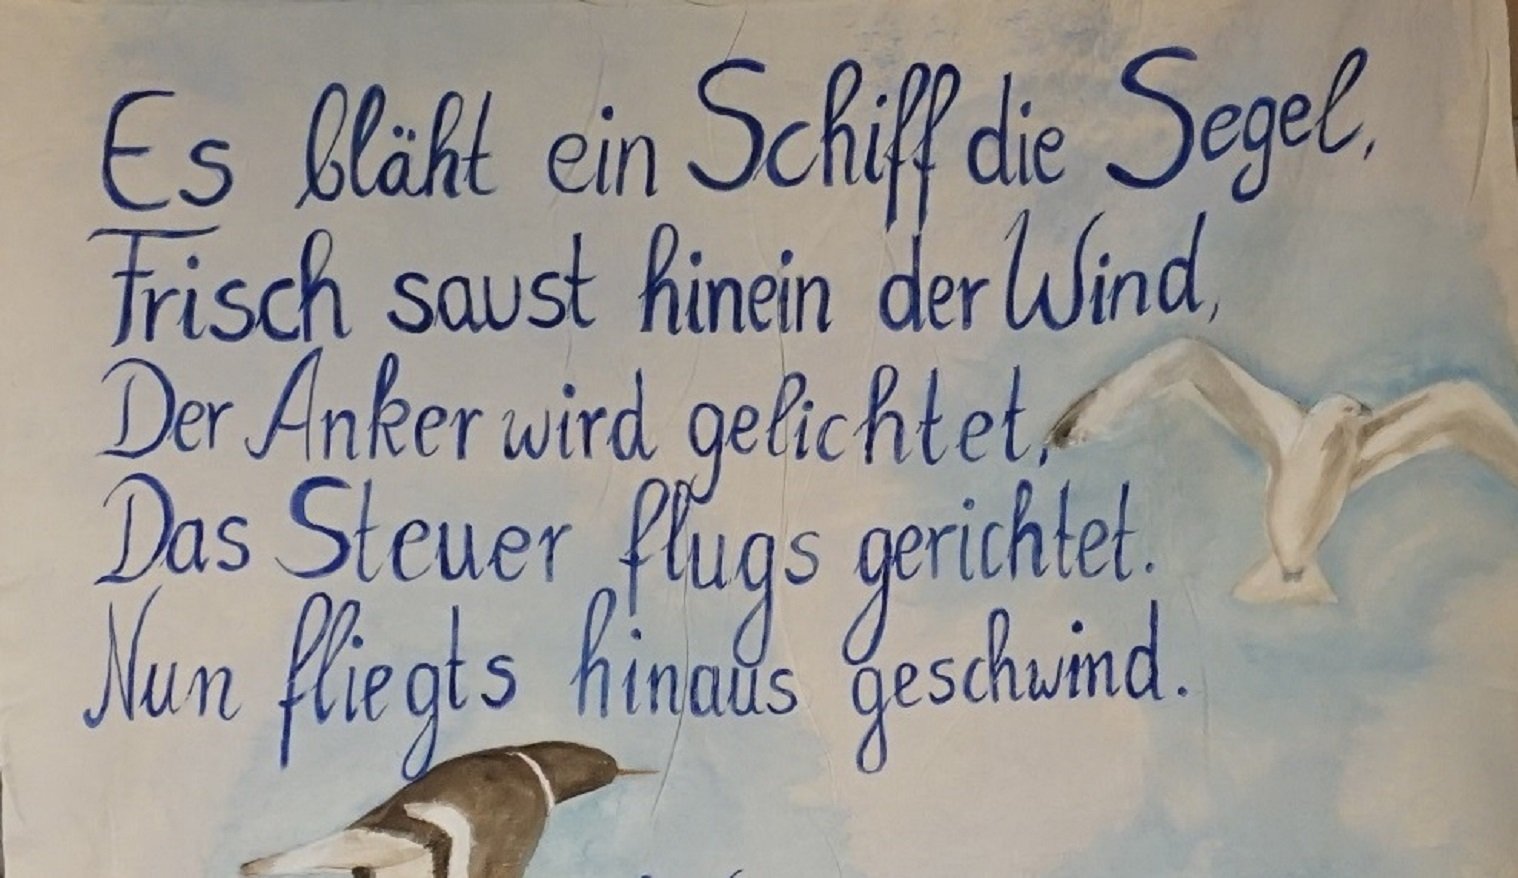 Es bläht ein Schiff die Segel,
Frisch saust hinein der Wind,
Der Anker wird gelichtet,
Das Steuer flugs gerichtet.
Nun fliegts hinaus geschwind.